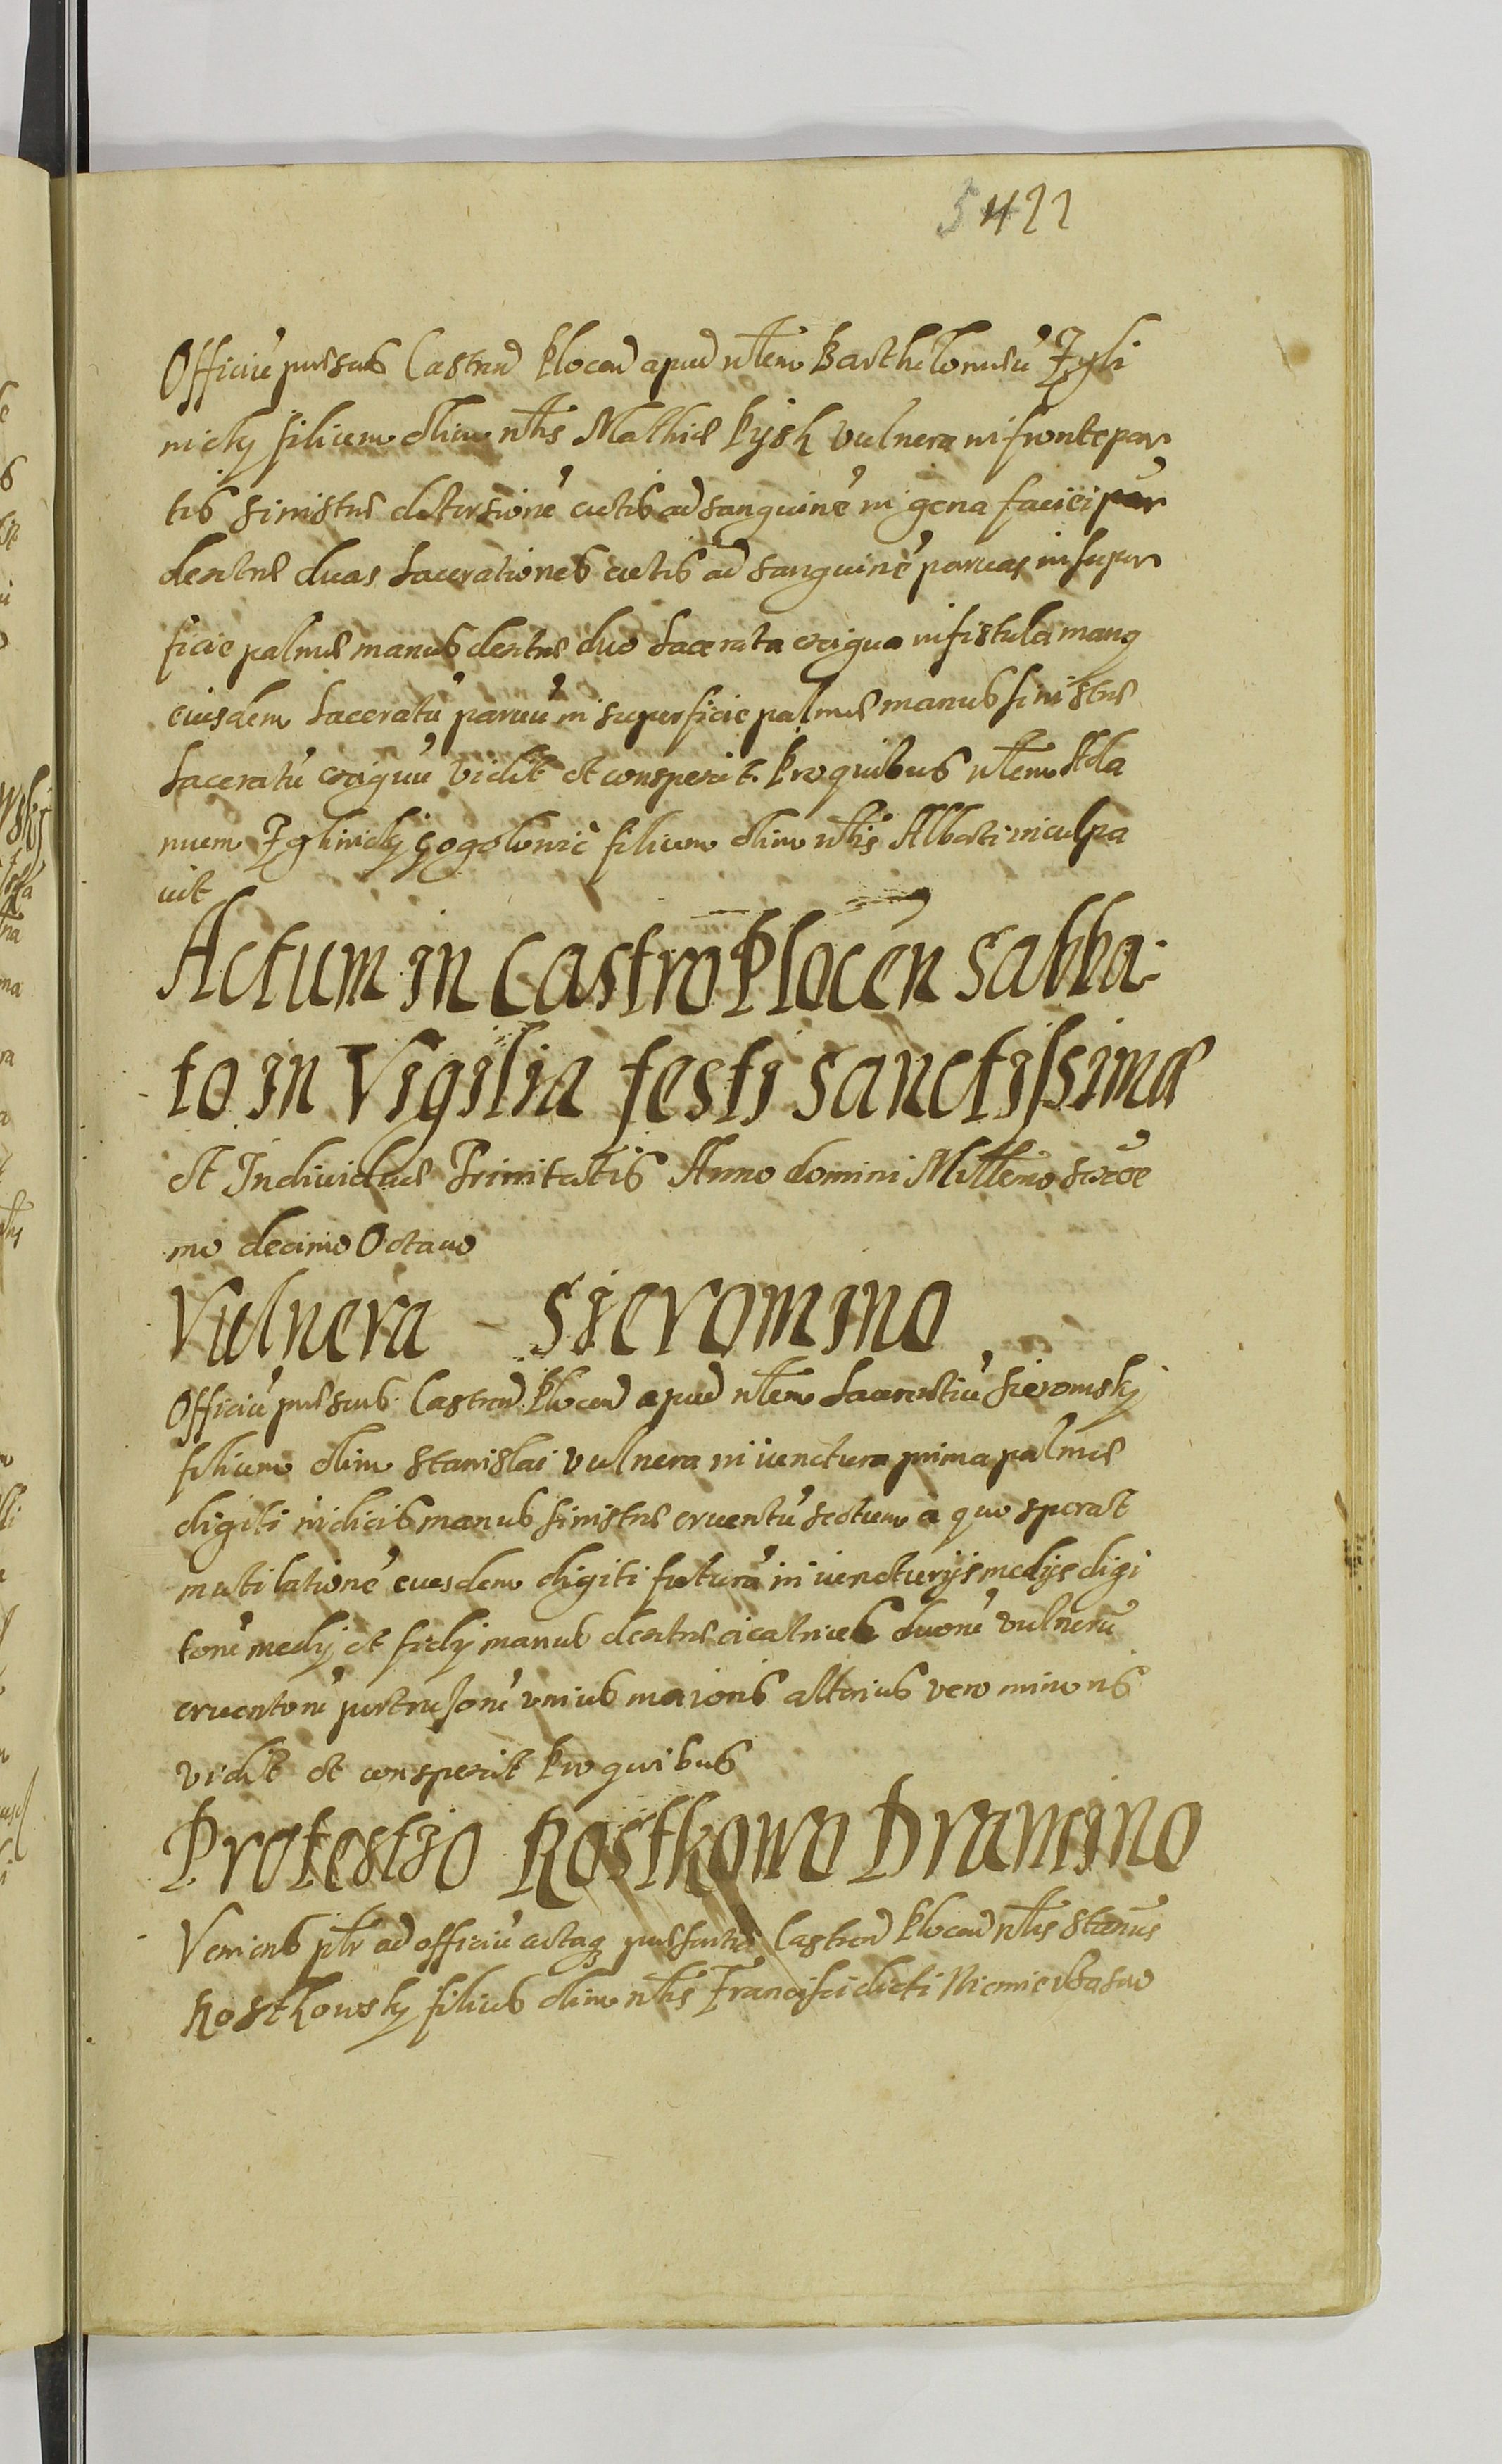 5422
Officiũ præsens Castreñ Plocen̄ apud nōblem Bartholomeũ Igli
nicky filium olim nōblis Mathiæ Kysk vulnera in fronte par
tis sinistræ detersionẽ cutis ad sanguinẽ in gena faciei par
dextræ duas lacerationes cutis ad sanguinẽ paruas in super
ficie palmæ manus dextræ duo lacerata exigua in fistula manus
eiusdem laceratũ paruũ in superficie palmæ manus sinistræ
laceratũ exiguũ vidit et conspexit. Pro quibus nōblem Ada
mum Iglinicky filium olim nōblis Alberti inculpa
uit
Actum in Castro Plocen̄ Sabba-
to in Vigilia festi Sanctissimæ
et Indiuiduæ Trinitatis Anno domini Millēmo sexcẽte
mo decimo Octauo
Vulnera - Sieromino
Officiũ præsens Castreñ Plocen̄ apud nōblem Laurentiũ Sieromsky
filium olim Stanislai vulnera in iunctura prima palmæ
digiti indicis manus sinistræ cruentũ sectum a quo sperat
mutilationẽ eiusdem digiti futurã in iuncturijs medijs digi
torũ medij et fidij manus dextræ cicatrices duorũ vulnerũ
cruentorũ pertrusorũ vnius maioris alterius vero minoris
vidit et conspexit Pro quibus
Protestio Rostkowo Dramino
Veniens pr̄ ad officiũ actaq̨ præsentia Castreñ Plocen̄ nōblis Stanūs
Rostkowsky filius olim nōblis Francisci dicti Niemierza suo